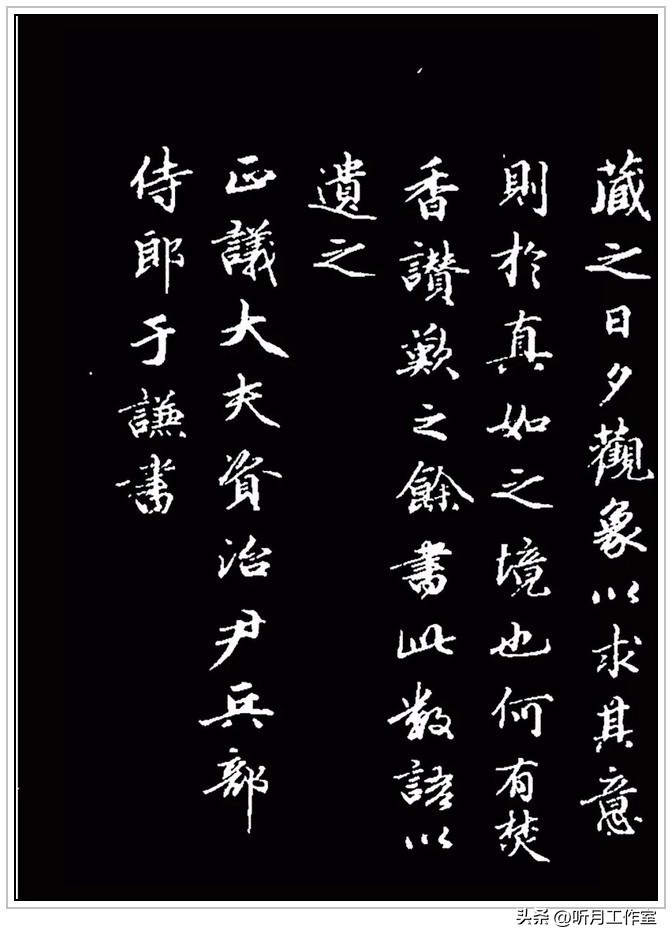 藏之日夕觀象以求其意
則於真如之境也何有焚
香讃歎之餘書此數語以
遺之
正議大夫資治尹兵部
侍郎于謙書
头条 @听月工作室